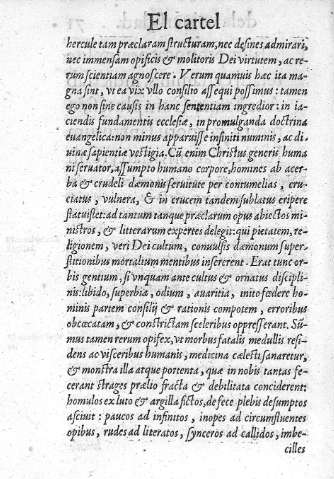 El cartel
hercule tam præclaram structuram, nec desines admirari,
uec immensam opificis & molitoris Dei virtutem, ac re-
rum scientiam agnoscere. Verum quamuis hæc ita ma-
gna sint, vt ea vix vllo consilio assequi possimus: tamen
ego non sine causis in hanc sententiam ingredior: in ia-
ciendis fundamentis ecclesiæ, in promulganda doctrina
euangelica: non minus apparuisse infiniti numinis, ac di-
uinæ sapientiæ vestigia. Cũ enim Christus generis huma
ni seruator, assumpto humano corpore, homines ab acer-
ba & crudeli dæmonis seruitute per contumelias, cru-
ciatus, vulnera, & in crucem tandem sublatus eripere
statuisset: ad tantum tanque præclarum opus abiectos mi-
nistros, & litterarum expertes delegit: qui pietatem, re-
ligionem, veri Dei cultum, conuulsis dæmonum super-
stitionibus mortalium mentibus insererent. Erat tunc or-
bis gentium, si vnquam ante cultus & ornatus discipli-
nis: libido, superbia, odium, auaritia, mito fœdere ho-
minis partem consilij & rationis compotem, erroribus
obcæcatam, & constrictam sceleribus oppresserant. Sũ-
mus tamen rerum opifex, vt morbus fatalis medullis resi-
dens ac visceribus humanis, medicina cælesti sanaretur,
& monstra illa atque portenta, quæ in nobis tantas fe-
cerant strages prælio fracta & debilitata conciderent;
homulos ex luto & argilla fictos, de fece plebis desumptos
asciuit: paucos ad infinitos, inopes ad circumfluentes
opibus, rudes ad literatos, synceros ad callidos, imbe-
cilles